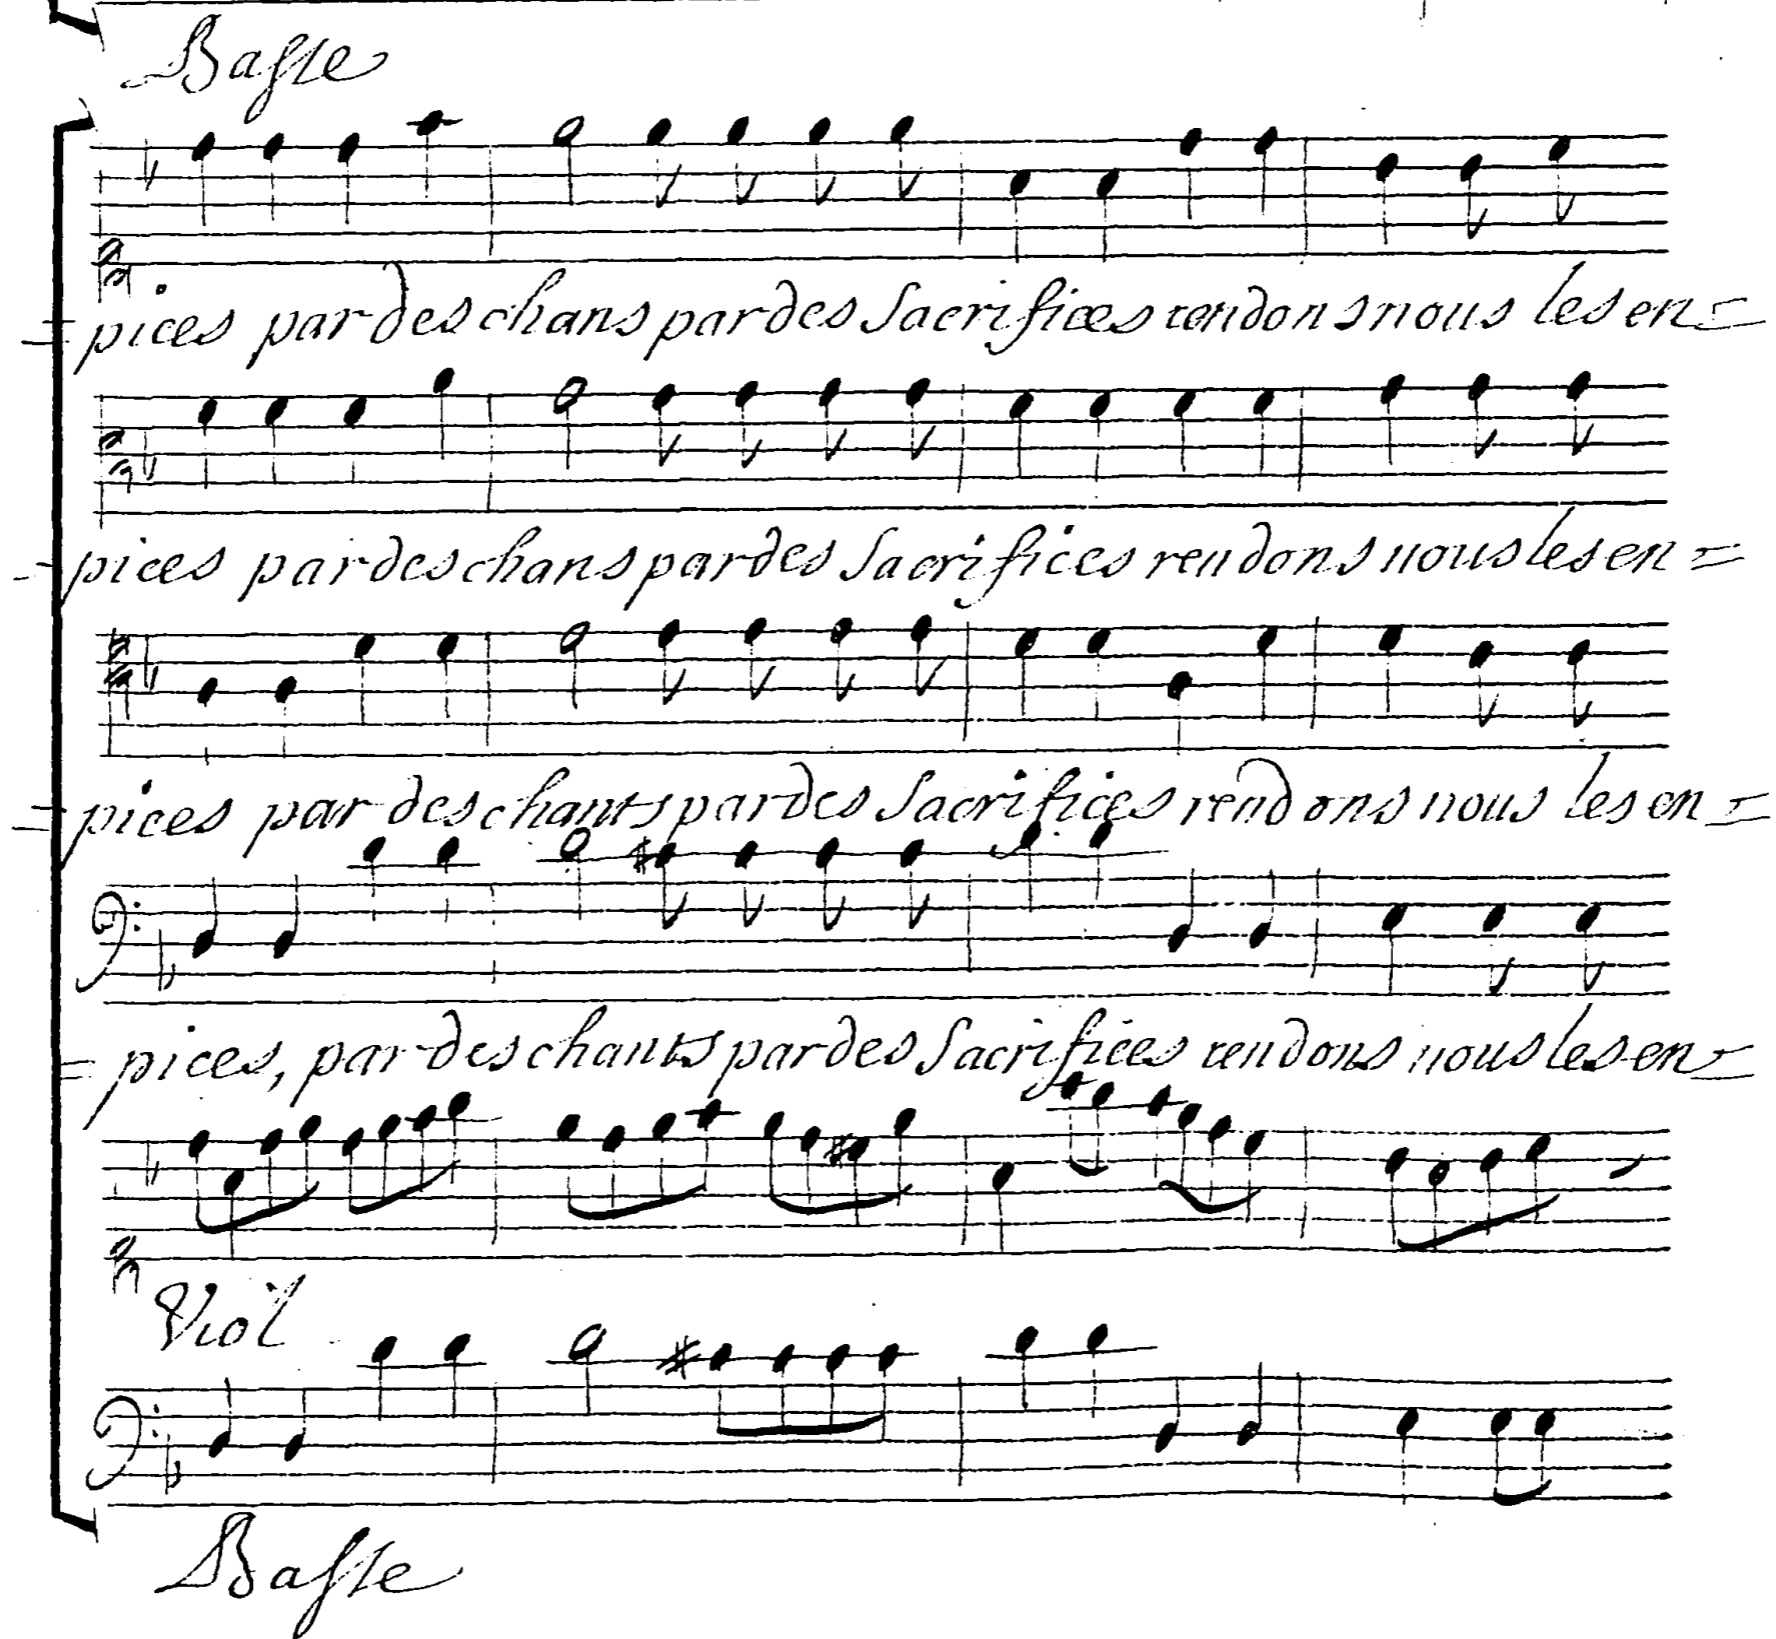 Basse
=pices par des chans par des Sacrifices rendons nous les en=
=pices par des chans par des Sacrifices rendons nous les en=
=pices par des chants par des Sacrifices rendons nous les en=
=pices, par des chants par des Sacrifices rendons nous les en=
Viol
Basse